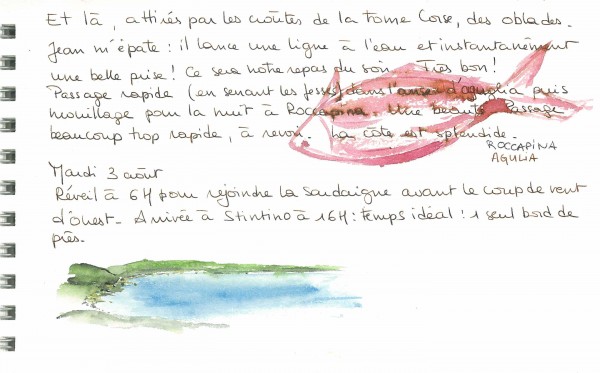 Et là, attirés par les croûtes de la Tome Corse, des oblades.
Jean m'épate : il lance une ligne à l'eau et instantanément
une belle prise ! Ce sera notre repas du soir. Très bon !
Passage rapide (en serrant les fesses) dans l'anse d'agulia puis
mouillage pour la nuit à Roccapina. Une beauté. Passage
beaucoup trop rapide, à revoir. La côte est splendide.
ROCCAPINA
AGULIA
Mardi 3 août
Réveil à 6H pour rejoindre la Sardaigne avant le coup de vent
d'ouest - Arrivée à Stintino à 16H : temps idéal ! 1 seul bord de
près.